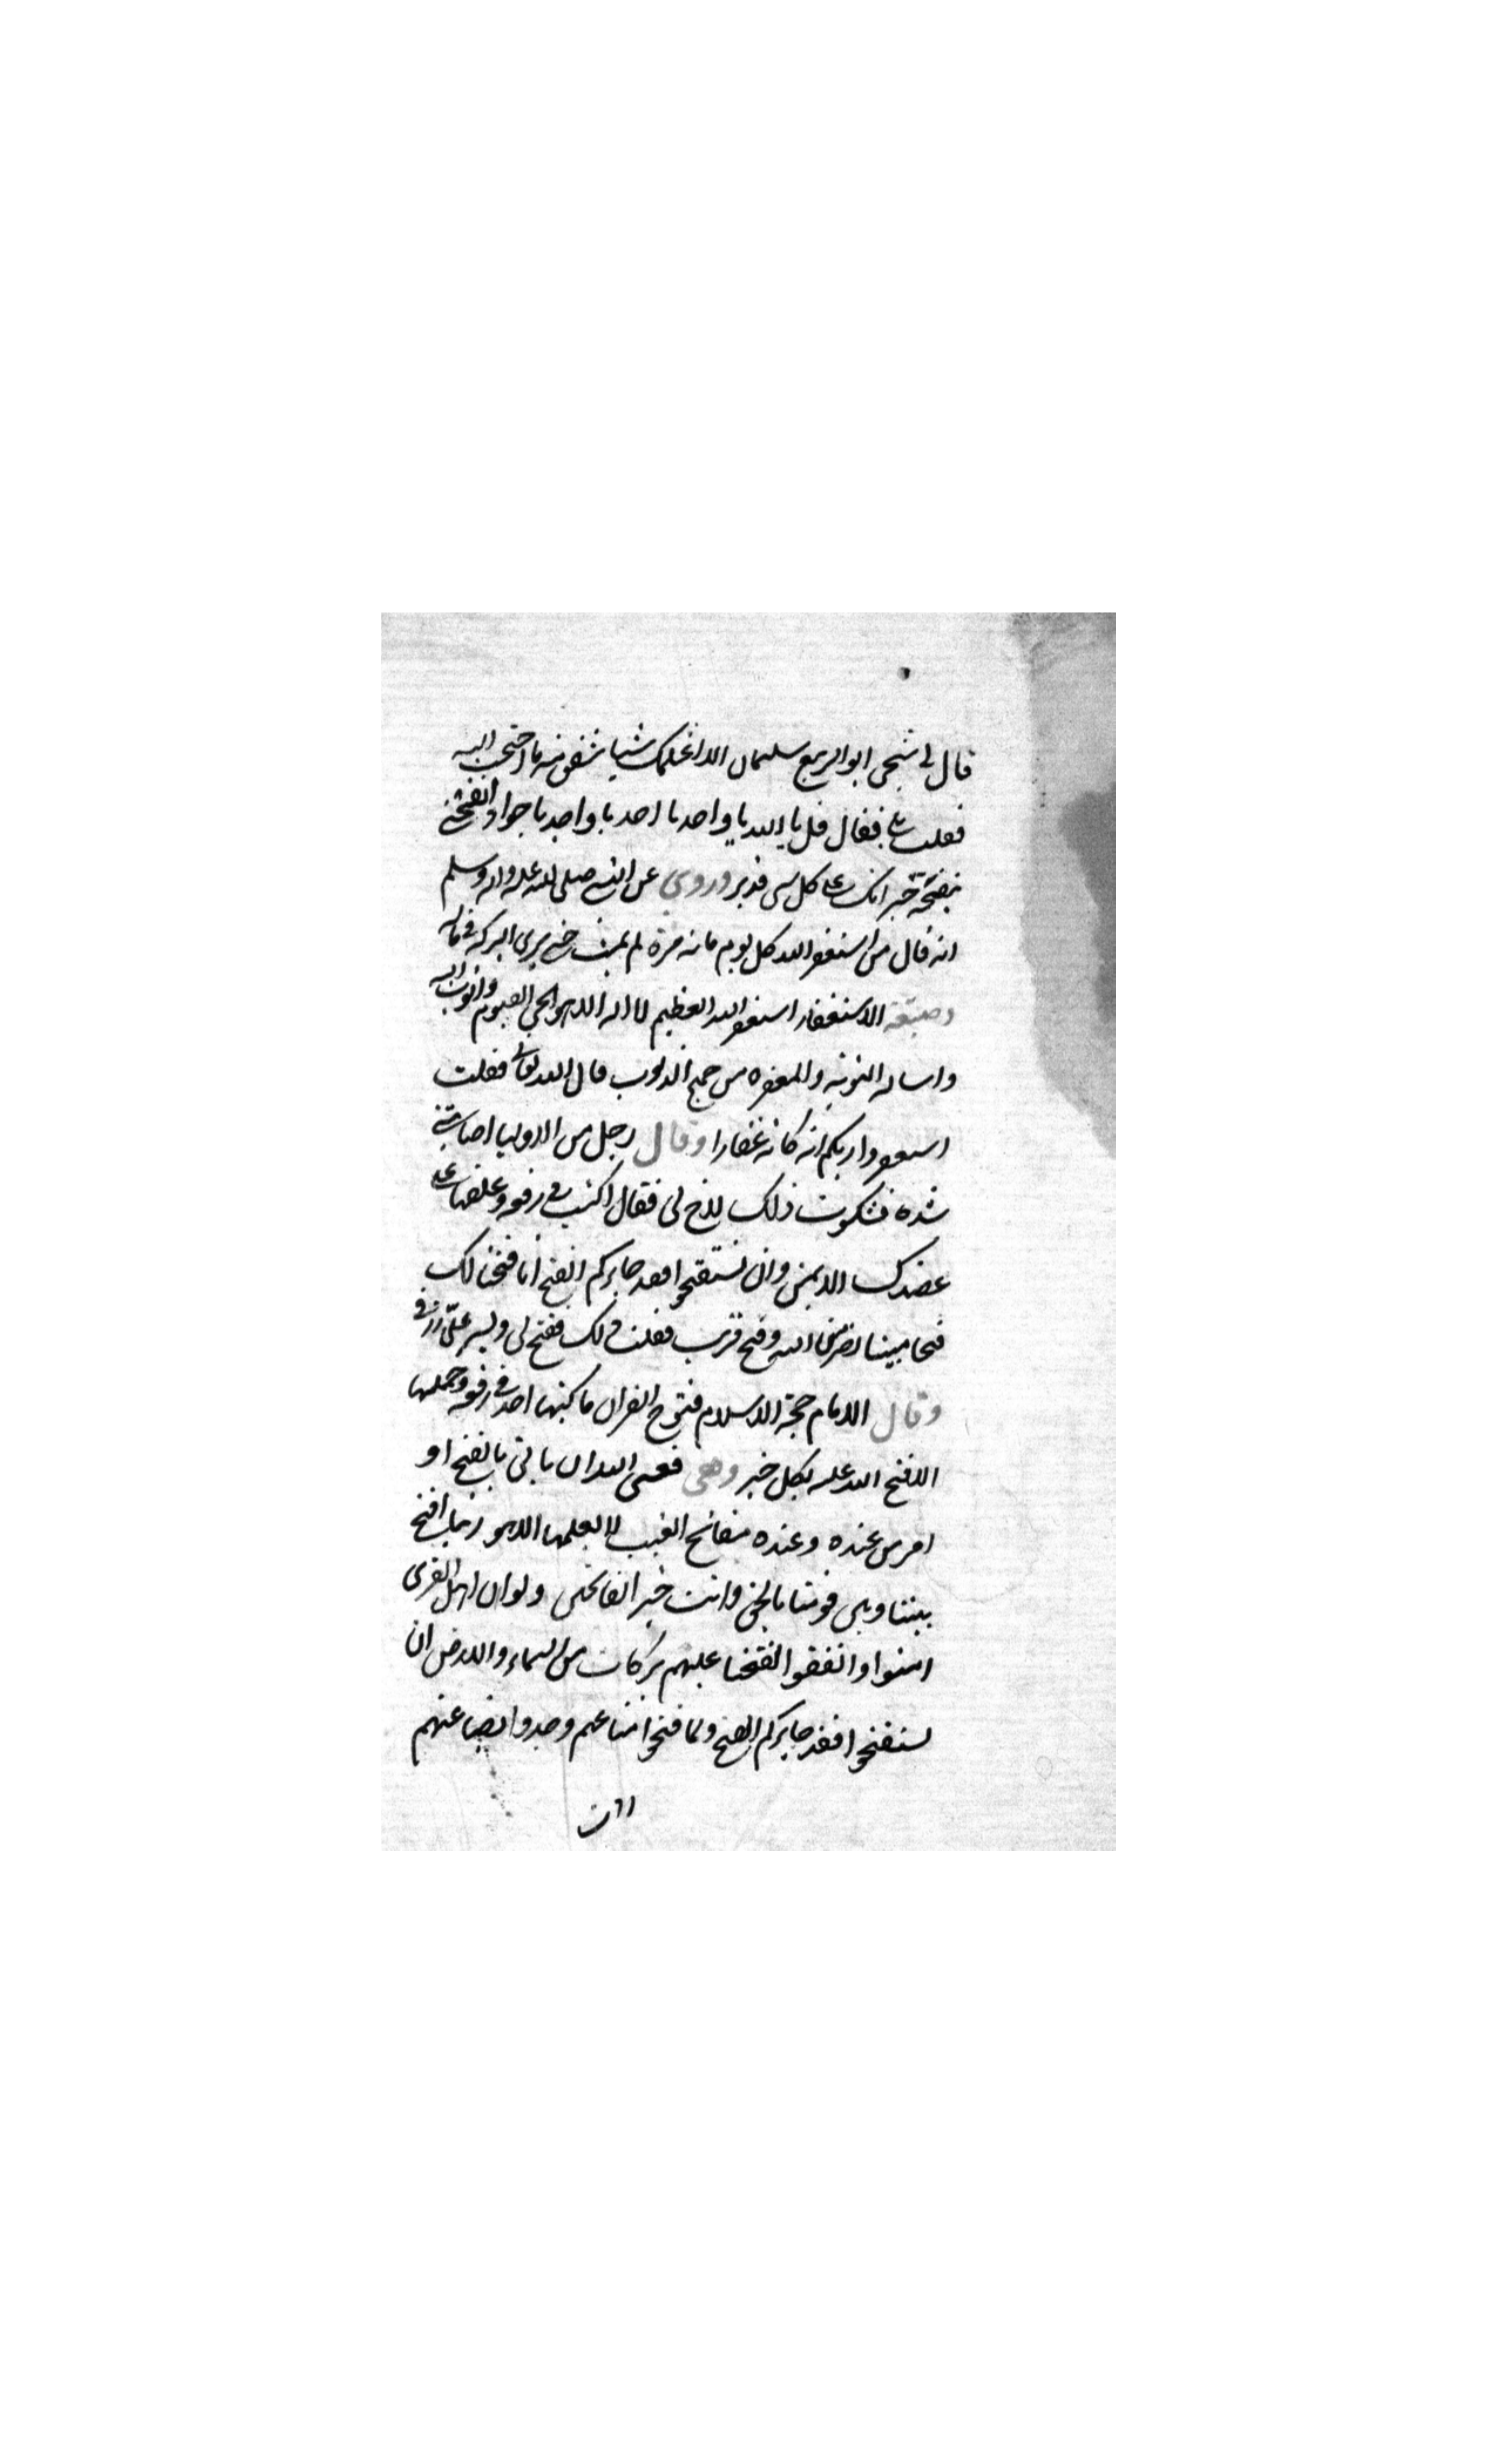 قال لي شيخي ابو الربيع سليمان الا اعلمك شيا تنفق منه ما احتجت اليه
فقلت بلى فقال قل يا الله يا واحد يا احد يا واجد يا جواد انفحني
بنفحة خير انك على كل شي قدير وروي عن النبي صلى الله عليه واله وسلم
انه قال من استغفر الله كل يوم مائة مرة لم يمت حتى يرى البركة في ماله
وصيغة الاستغفار استغفر الله العظيم لا اله الا هو الحي القيوم واتوب اليه
واساله التوبه والمغفره من جميع الذنوب قال الله تعالى فقلت
استغفروا ربكم انه كان غفارا وقال رجل من الاوليا اصابتني
شده فشكوت ذلك لاخ لي فقال اكتب في رقعه وعلقها على
عضدك الايمن وان تستفتحوا فقد جاءكم الفتح انا فتحنا لك
فتحا مبينا نصر من الله وفتح قريب ففعلت ذلك ففتح لي ويسر علي رزقي
وقال الامام حجة الاسلام فتوح القران ما كتبها احد في رقعه وحملها
الا فتح الله عليه بكل خير وهي فعسى الله ان ياتي بالفتح او
امر من عنده وعنده مفاتح الغيب لا يعلمها الا هو ربنا افتح
بيننا وبين قومنا بالحق وانت خير الفاتحين ولو ان اهل القرى
امنوا واتقوا لفتحنا عليهم بركات من السماء والارض ان
تستفتحوا فقد جاءكم الفتح ولما فتحوا متاعهم وجدوا بضاعتهم